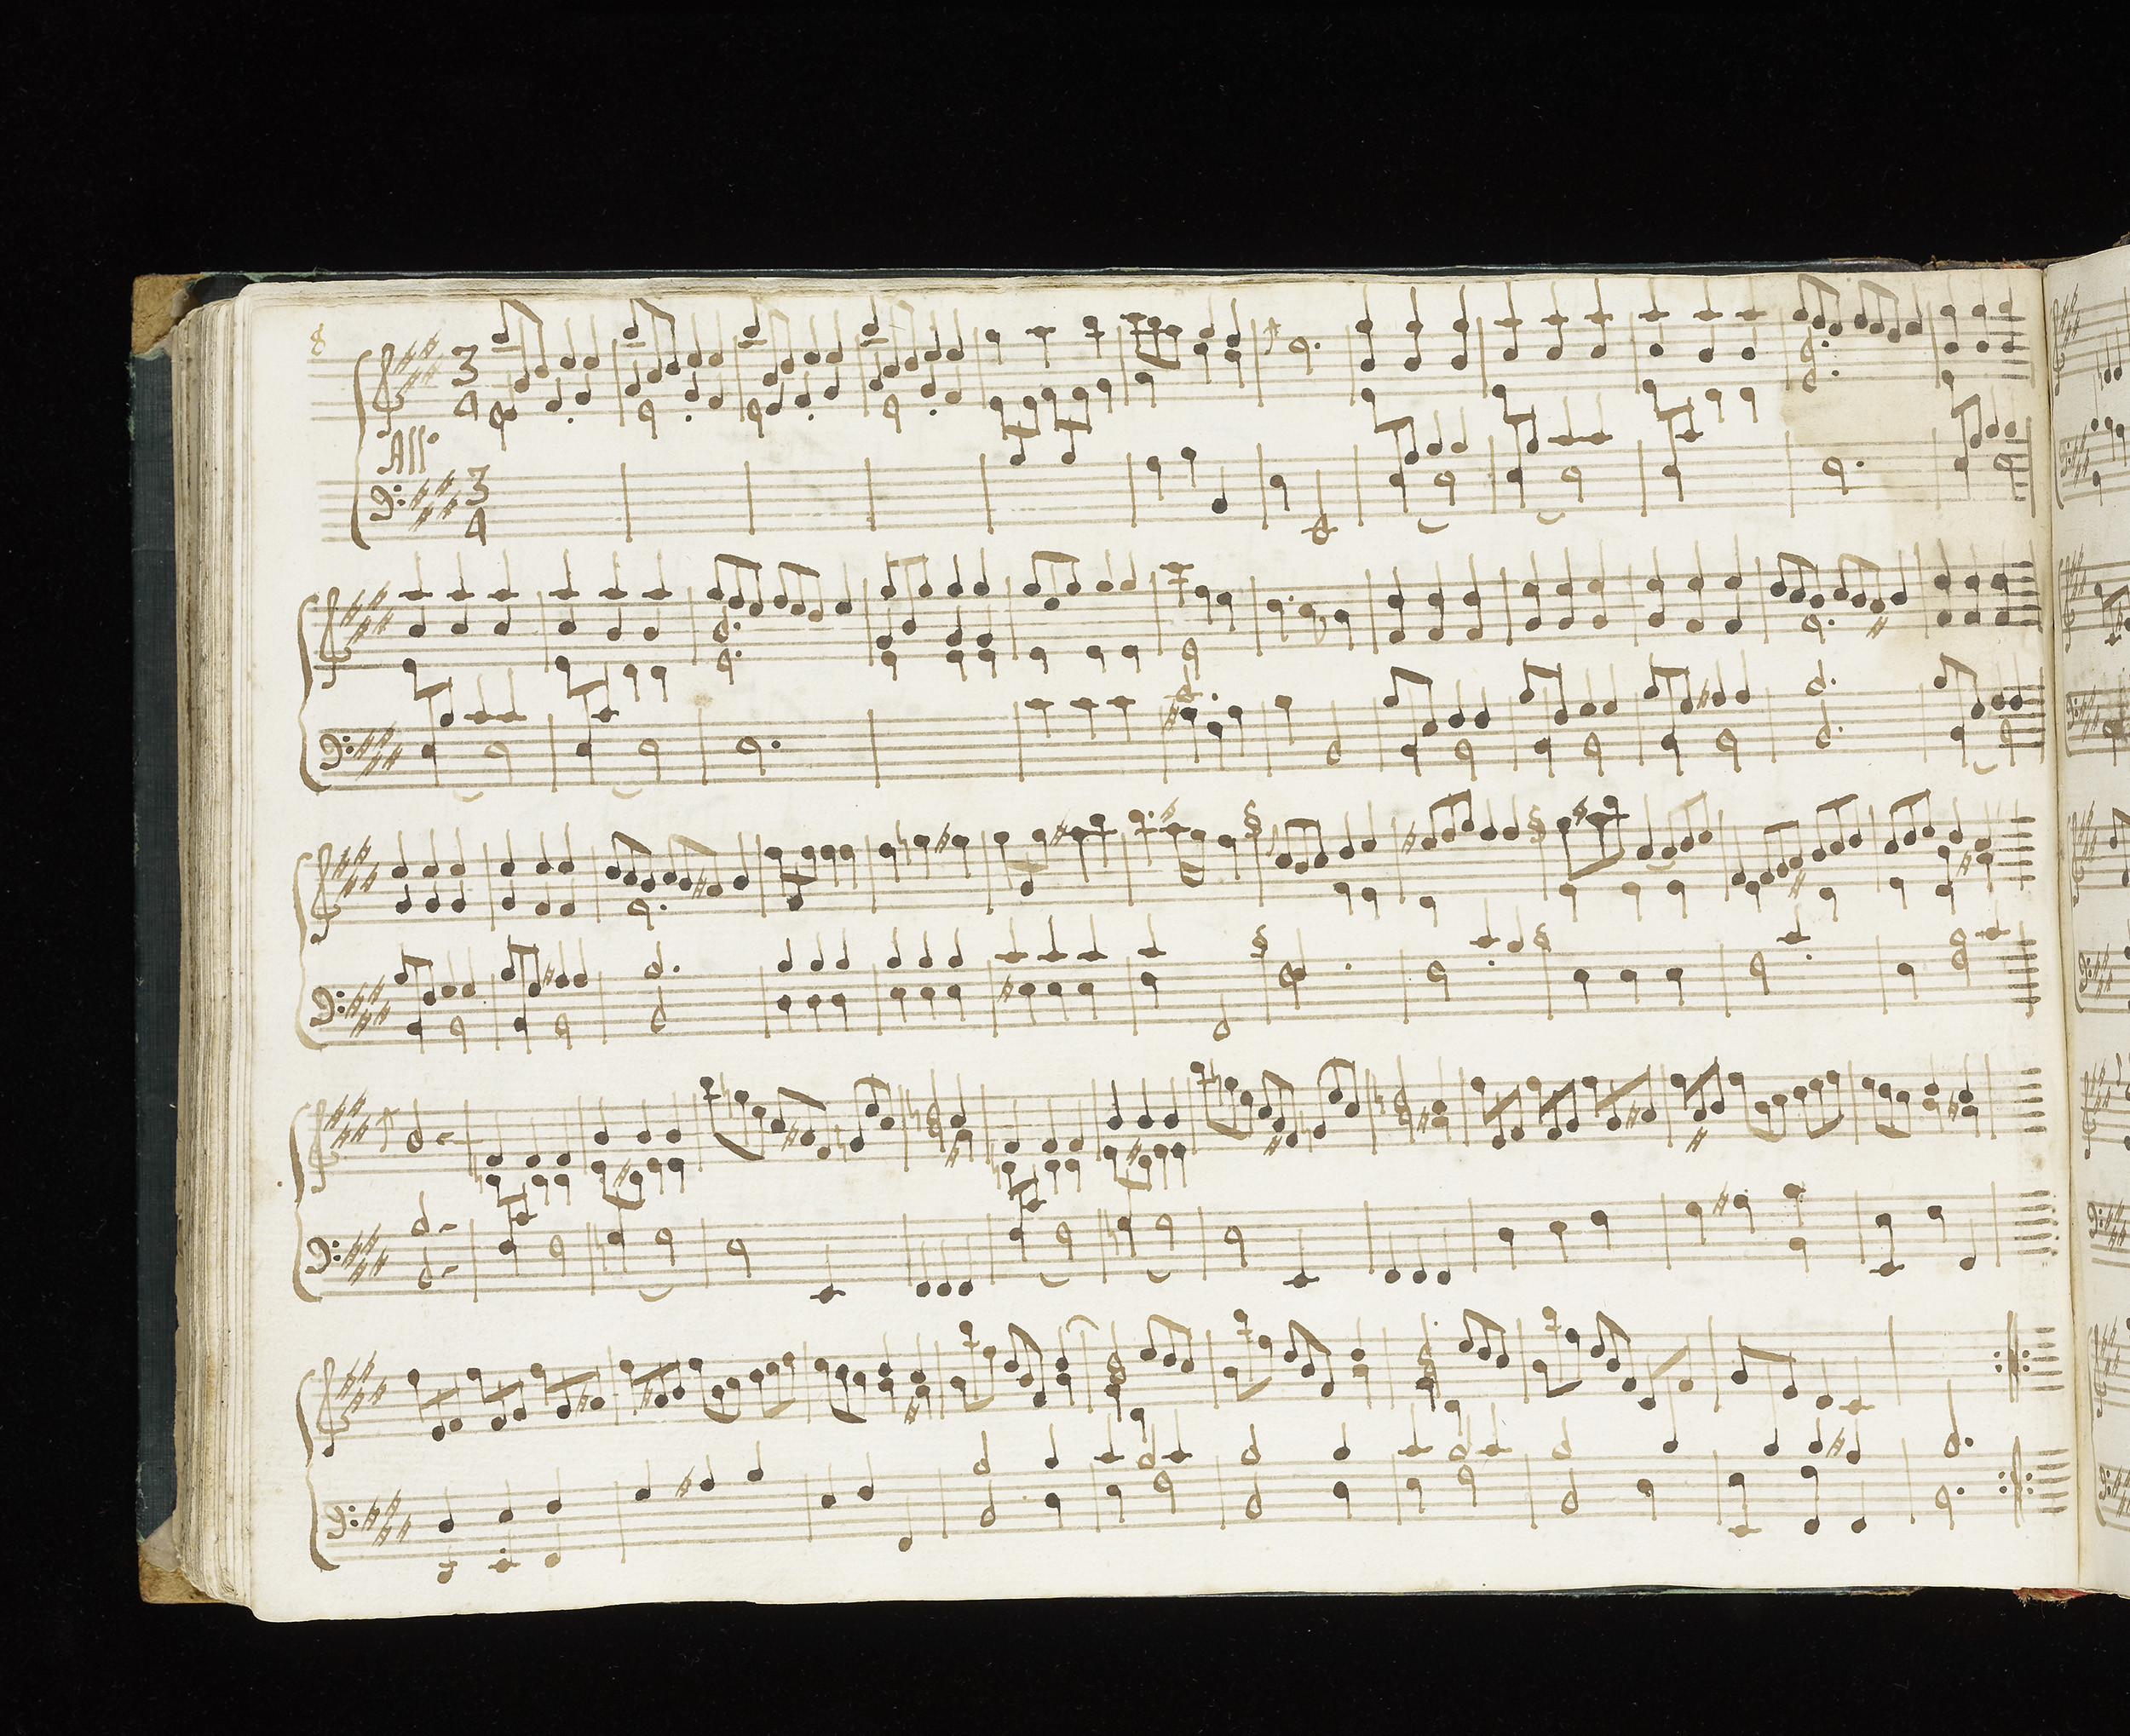 8
3
4
Allo
3
4